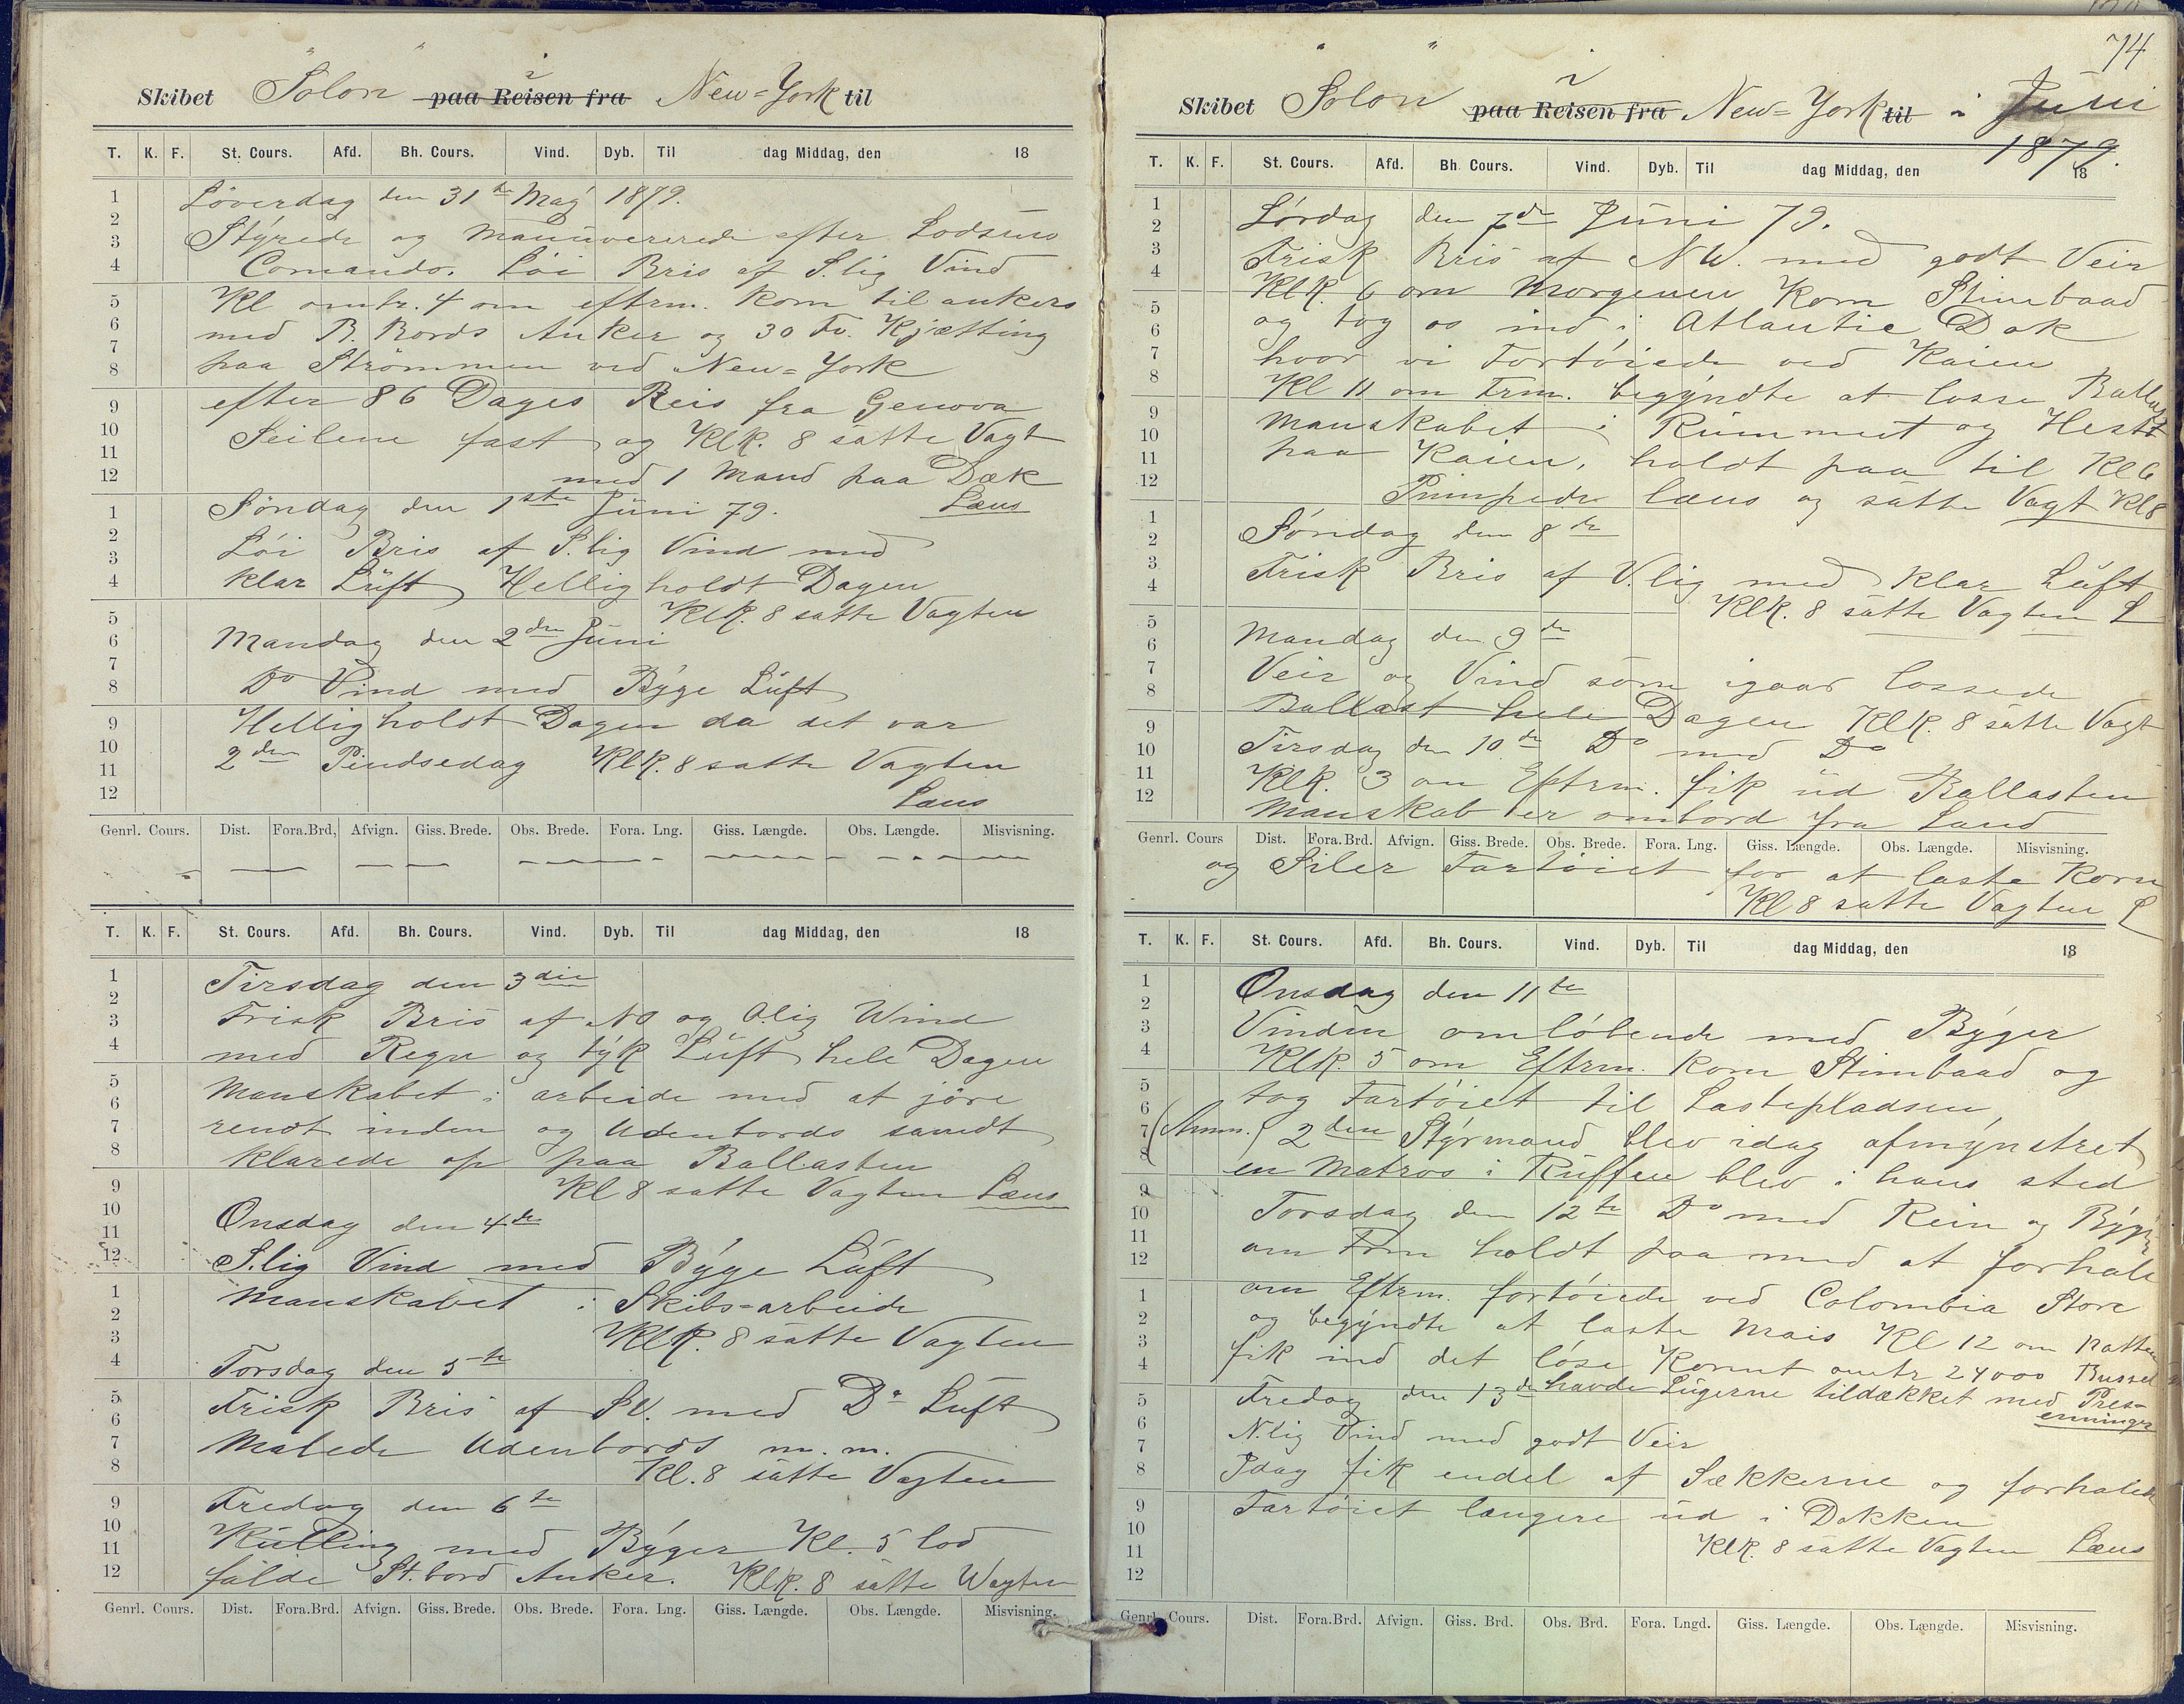 Skibet "Solon" paa Reisen fra i New=York til
T. K. F. St. Cours. Afd. Bh. Cours. Vind. Dyb. Til dag Middag, den 18
Löverdag den 31te Maÿ 1879.
Stÿrede og manüvererede efter Lodsens
Comando. Löi Bris af S.lig Vind
Kl omtr. 4 om eftrm. kom til ankers
med B. Bords Anker og 30 Fv. Kjætting
paa Strömmen ved New=York
efter 86 Dages Reis fra Genova
Seilene fast og Klk. 8 satte Vagt
med 1 Mand paa Dæk
Læns
Söndag den 1ste Jüni 79.
Löi Bris af S.lig Vind med
klar Lüft Helligholdt Dagen
Klk. 8 satte Vagten
Mandag den 2den Jüni
Do Vind med Bÿge Lüft
Helligholdt Dagen da det var
2den Pindsedag Klk. 8 satte Vagten
Læns
Genrl. Cours. Dist. Fora.Brd, Afvign. Giss. Brede. Obs. Brede. Fora. Lng. Giss. Længde. Obs. Længde. Misvisning.
T. K. F. St. Cours. Afd. Bh. Cours. Vind. Dyb. Til dag Middag, den 18
Tirsdag den 3die
Frisk Bris af NO og O.lig Wind
med Regn og tÿk Lüft hele Dagen
Manskabet i arbeide med at jöre
rendt inden og Udenbords samdt
klarede op paa Ballasten
Kl 8 satte Vagten Læns
Onsdag den 4de
S.lig Vind med Bÿge Lüft
Manskabet i Skibs=arbeide
Klk. 8 satte Vagten
Torsdag den 5te
Frisk Bris af SV. med Do Lüft
Malede Udenbords m. m.
Kl. 8 satte Vagten
Fredag den 6te
Külling med Bÿger Kl. 5 lod
falde St.bord Anker. Klk. 8 satte Wagten
Genrl. Cours. Dist. Fora.Brd. Afvign. Giss. Brede. Obs. Brede. Fora. Lng. Giss. Længde. Obs. Længde. Misvisning.
74
Skibet "Solon" paa Reisen fra i New=York til i Juni
1879.
T. K. F. St. Cours. Afd. Bh. Cours. Vind. Dyb. Til dag Middag, den 18
Lördag den 7de Jüni 79.
Frisk Bris af NW. med godt Veir
Klk. 6 om Morgenen kom Stimbaad
og tog os ind i Atlantic Dok
hvor vi Fortöiede ved Kaien
Kl 11 om Frm. begÿndte at losse Ballast
Manskabet i Rümmet og Hest
paa Kaien, holdt paa til Kl 6
Pümpede læns og satte Vagt Kl 8
Söndag den 8de
Frisk Bris af V.lig med klar Lüft
Klk. 8 satte Vagten L
Mandag den 9de
Veir og Vind som igaar lossede
Ballast hele Dagen Klk. 8 satte Vagt
Tirsdag den 10de Do med Do
Klk. 3 om Eftrm. fik üd Ballasten
Manskab er ombord fra Land
Genrl. Cours Dist. Fora.Brd. Afvign. Giss. Brede. Obs. Brede. Fora. Lng. Giss. Længde. Obs. Længde. Misvisning.
og Siler Fartöiet for at laste Korn
Kl 8 satte Vagten L
T. K. F. St. Cours. Afd. Bh. Cours. Vind. Dyb. Til dag Middag, den 18
Onsdag den 11te
Vinden omlöbende med Bÿger
Klk. 5 om Eftrm. kom Stimbaad og
tog Fartöiet til Lastepladsen,
(Anm.) 2den Stÿrmand blev idag afmÿnstret
en Matros i Rüffen blev i hans sted
Torsdag den 12te Do med Rein og Bÿger
om Frm holdt paa med at forhale
om Eftrm. fortöiede ved Colombia Store
og begÿndte at laste Mais Kl 12 om Natten
fik ind det löse Kornt omtr 24000 Bussel
Fredag den 13de havde Lügerne tildækket med Pres-
enninger
N.lig Vind med godt Veir
Idag fik endel af Sækkerne og forhalede
Fartöiet længere üd i Dokken
Klk. 8 satte Vagten Læns
Genrl. Cours. Dist. Fora.Brd. Afvign. Giss. Brd. Obs. Brd. Fora. Lngd. Giss. Længde. Obs. Længde. Misvisning.